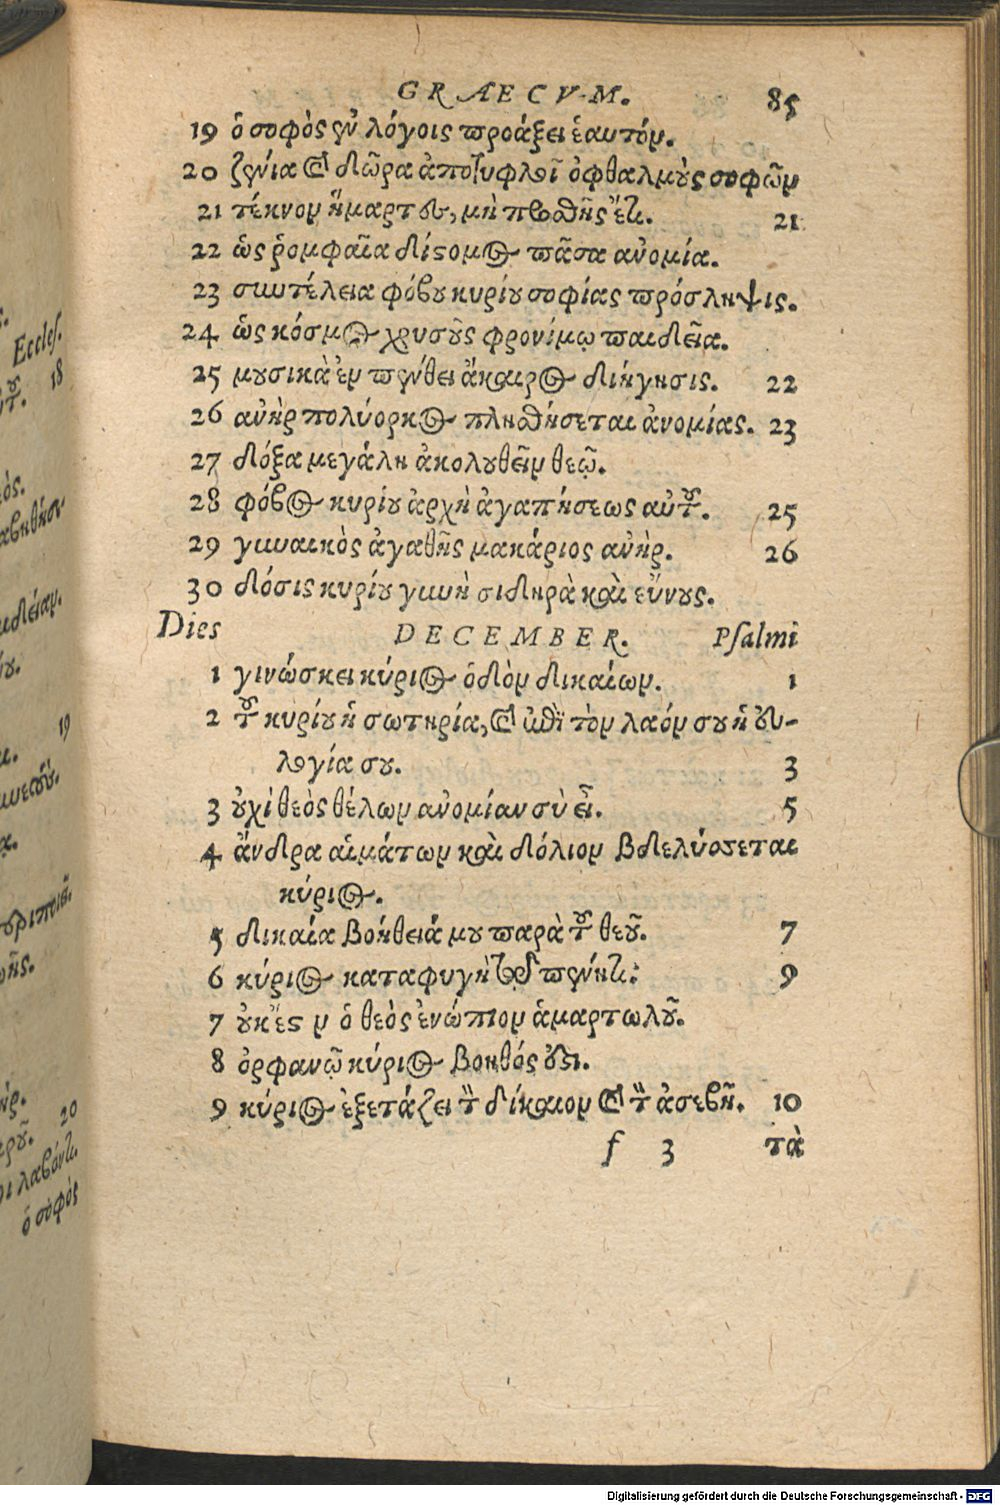 GRAECVM. 85
19 ὁ σοφὸς ἐν λόγοις προάξει ἑαυτόν.
20 ξένια καὶ δῶρα ἀποτυφλοῖ ὀφθαλμοὺς σοφῶν
21 τέκνον ἥμαρτες, μὴ προσθῇς ἔτι. 21
22 ὡς ῥομφαία δίστομος πᾶσα ἀνομία.
23 συντέλεια φόβου κυρίου σοφίας πρόσληψις.
24 ὡς κόσμος χρυσοῦς φρονίμῳ παιδεία.
25 μουσικὰ ἐν πένθει ἄκαιρος διήγησις. 22
26 ἀνὴρ πολύορκος πληθήσεται ἀνομίας. 23
27 δόξα μεγάλη ἀκολουθεῖν θεῷ.
28 φόβος κυρίου ἀρχὴ ἀγαπήσεως αὐτοῦ. 25
29 γυναικὸς ἀγαθῆς μακάριος ἀνὴρ. 26
30 δόσις κυρίου γυνὴ σιδηρὰ καὶ εὔνους.
Dies DECEMBER. Psalmi
1 γινώσκει κύριος ὁδὸν δικαίων. 1
2 τοῦ κυρίου ἡ σωτηρία, καὶ ἐπὶ τὸν λαόν σου ἡ εὐ-
λογία σου. 3
3 οὐχὶ θεὸς θέλων ἀνομίαν σὺ εἶ. 5
4 ἄνδρα αἱμάτων καὶ δόλιον βδελύσσεται
κύριος.
5 δικαία βοήθειά μου παρὰ τοῦ θεοῦ. 7
6 κύριος καταφυγὴ τῷ πένητι: 9
7 οὐκ ἔστιν ὁ θεὸς ἐνώπιον ἁμαρτωλοῦ.
8 ὀρφανῷ κύριος βοηθός ἐστι.
9 κύριος ἐξετάζει τὸν δίκαιον καὶ τὸν ἀσεβῆ. 10
f 3 τὰ
Eccles.
18
19
20
ὁ σοφὸς
Digitalisierung gefördert durch die Deutsche Forschungsgemeinschaft - DFG